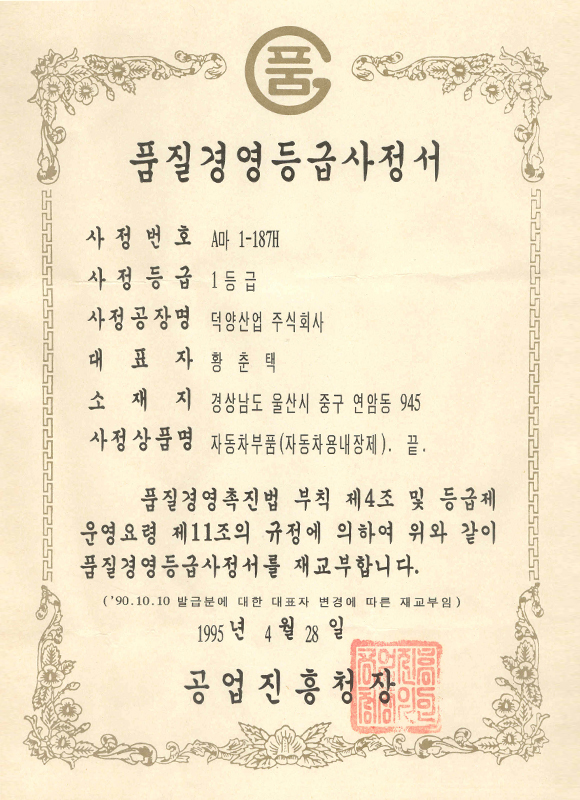 품
품질경영등급사정서
사정번호 A마 1-187H
사정등급 1등급
사정공장명 덕양산업 주식회사
대표자 황춘택
소재지 경상남도 울산시 중구 연암동 945
사정상품명 자동차부품(자동차용내장제). 끝.
품질경영촉진법 부칙 제4조 및 등급제
운영요령 제11조의 규정에 의하여 위와 같이
품질경영등급사정서를 재교부합니다.
('90.10.10 발급분에 대한 대표자 변경에 따른 재교부임)
1995년 4월 28일
공업진흥청장